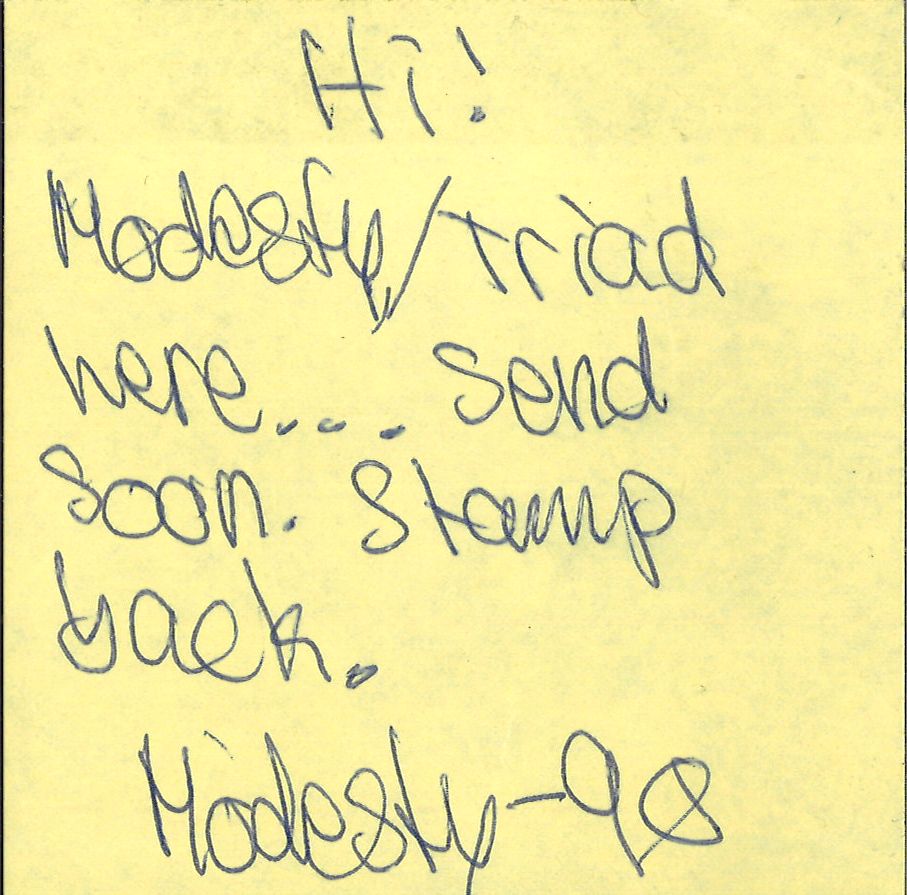 Hi!
Modesty/Triad
here... send
soon. Stamp
back.
Modesty-98